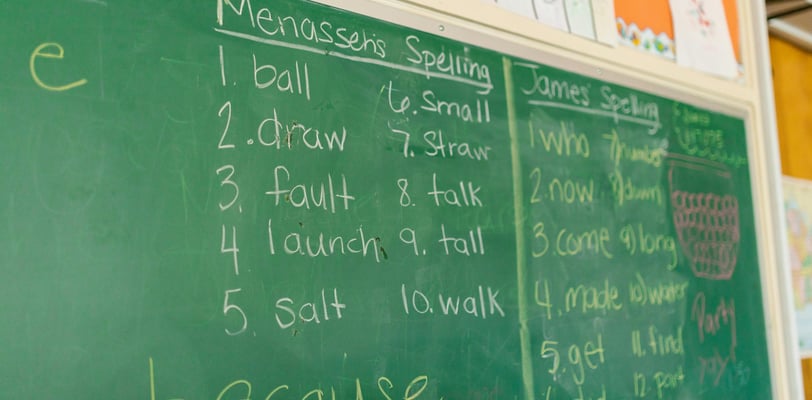 e
Menasseh's Spelling
1. ball
2. draw
3. fault
4 launch
5. salt
6. Small
7. Straw
8. talk
9. tall
10. walk
James' Spelling
1 who
2. now
3. come
4. made
5. get
7) number
8) down
9) long
10) water
11. find
12. part
Party
yay!
because